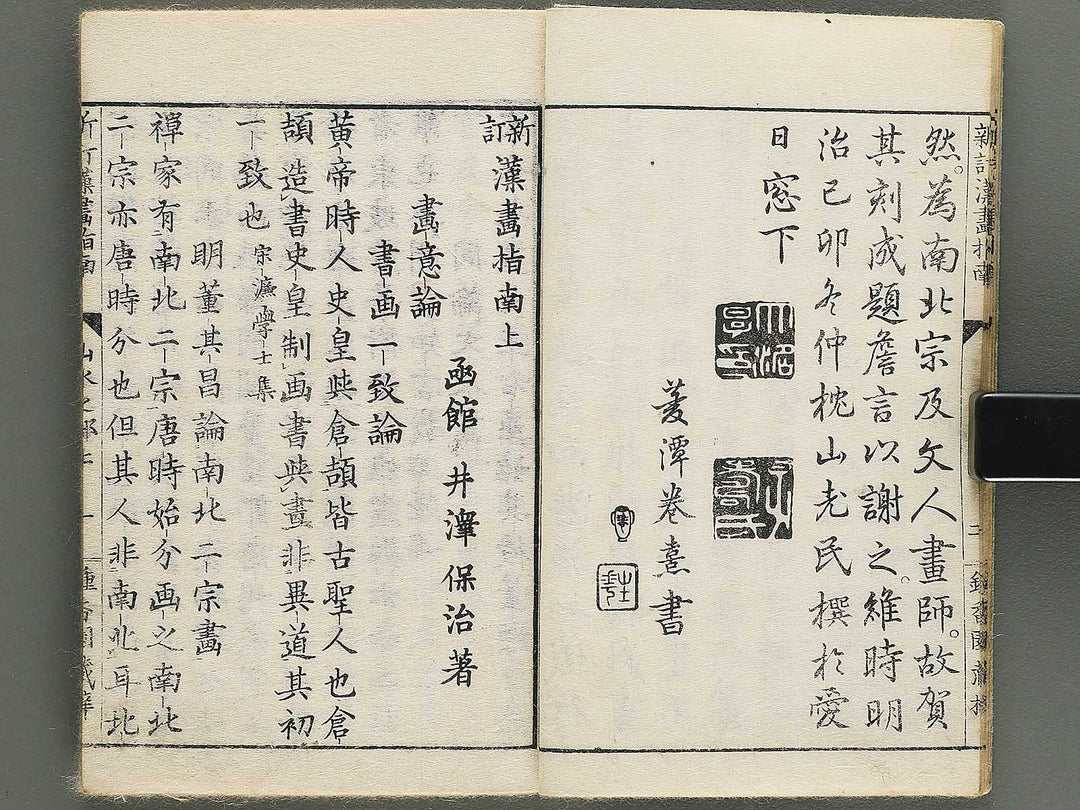 新訂漢畫指南
二
然。為南北宗及文人畫師。故賀
其刻成題詹言以謝之。維時明
治己卯冬仲枕山老民撰於愛
日窓下
菱潭卷熹書
新訂漢畫指南上
函館 井澤保治著
畫意論
書画一致論
黃帝時人史皇與倉頡皆古聖人也倉
頡造書史皇制画書與畫非異道其初
一致也 宋濂學士集
明董其昌論南北二宗畫
禅家有南北二宗唐時始分画之南北
二宗亦唐時分也但其人非南北耳北
新訂漢畫指南
山水之部上
一